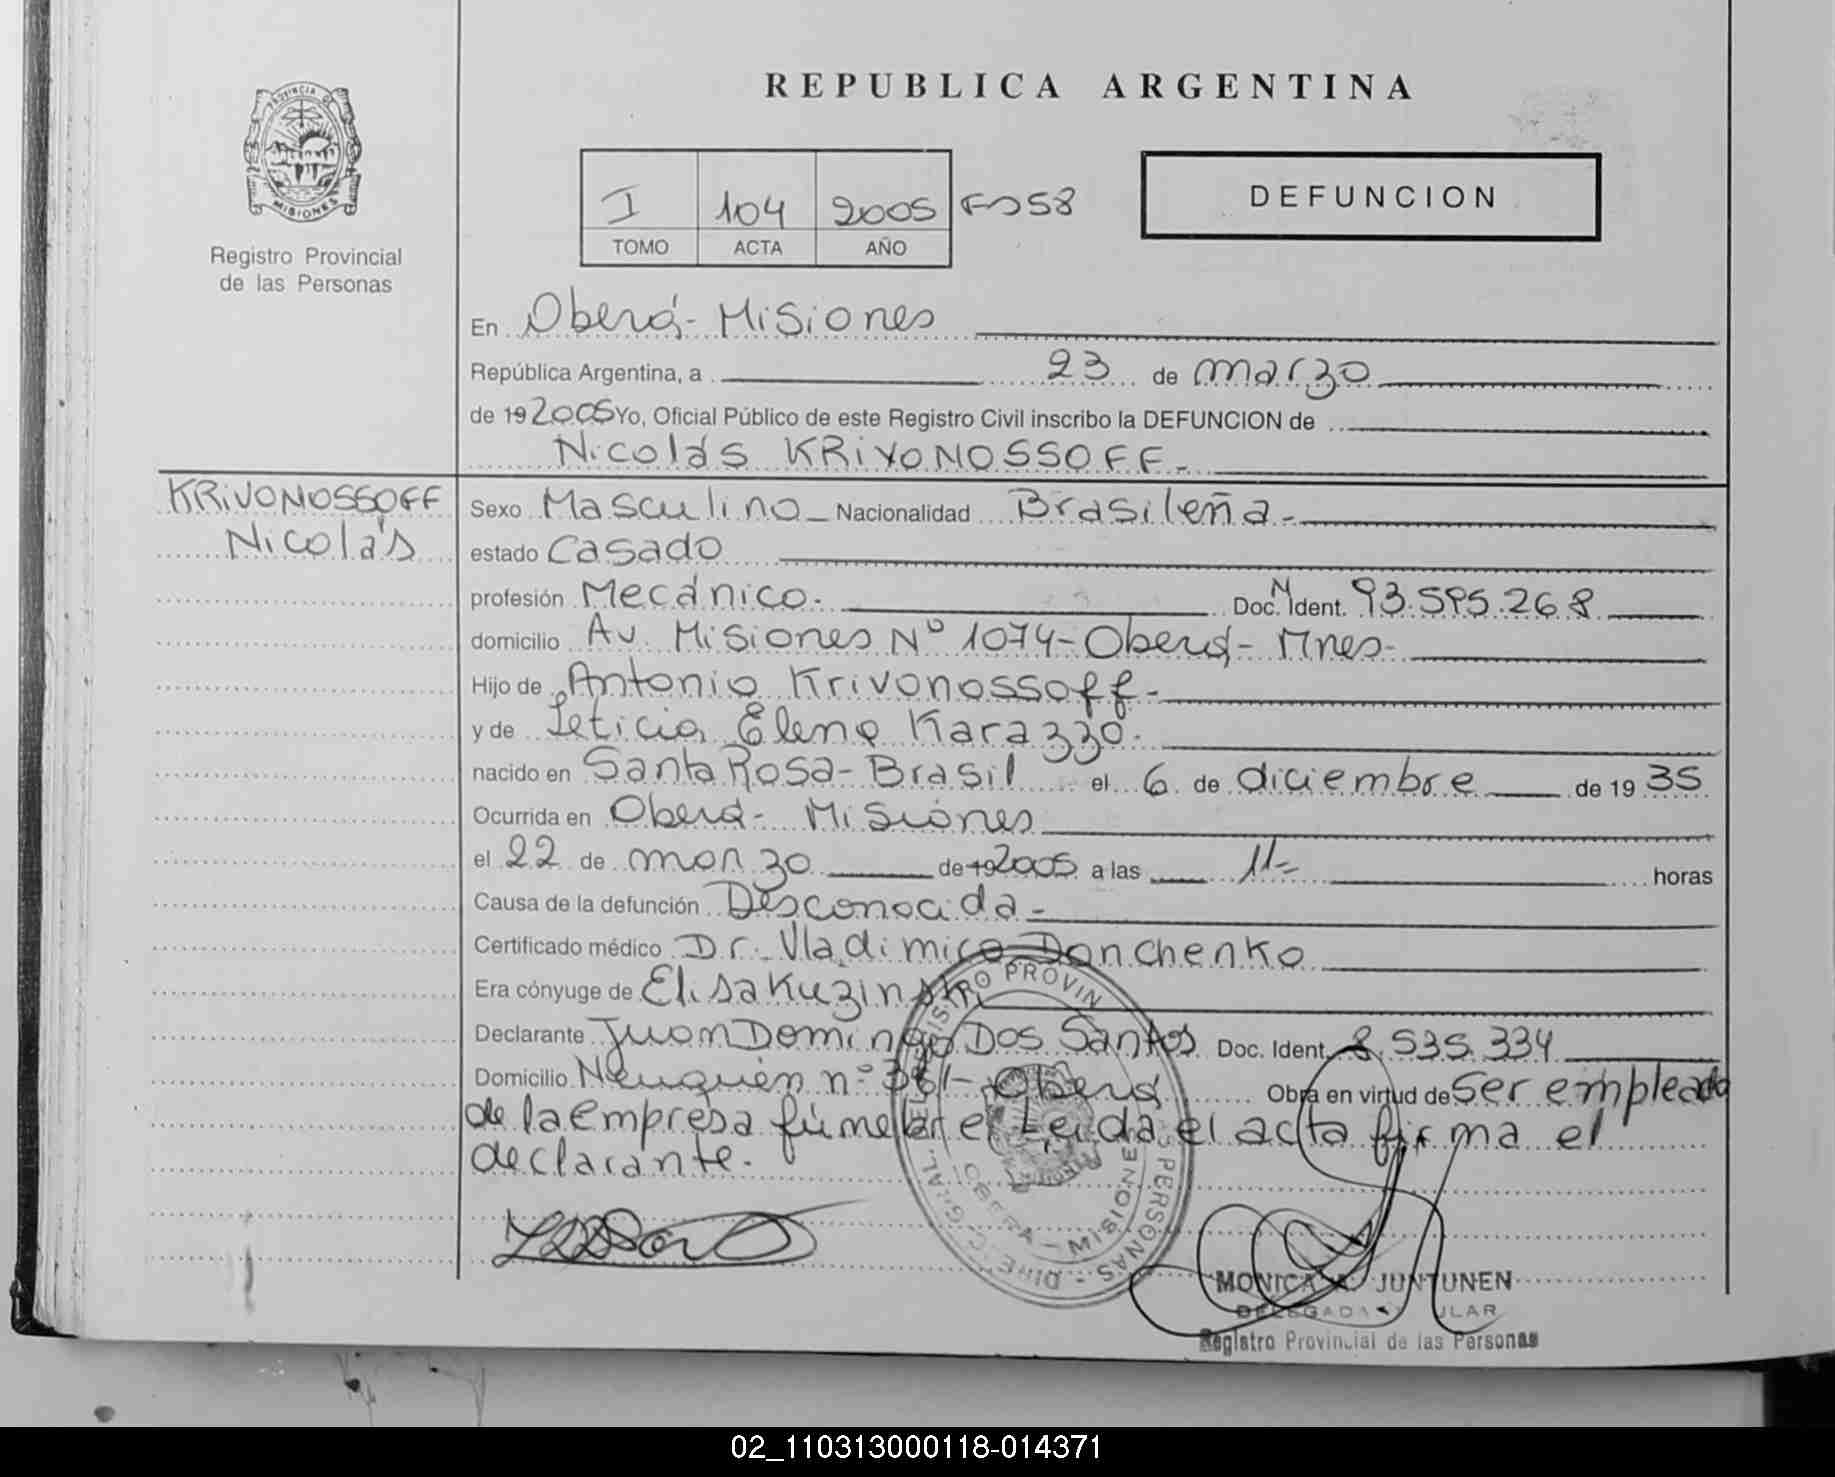 PROVINCIA DE
MISIONES
Registro Provincial
de las Personas
REPUBLICA ARGENTINA
I 104 2005 Fº 58
TOMO ACTA AÑO
DEFUNCION
En Oberá- Misiones
República Argentina, a 23 de marzo
de 19 2005 Yo, Oficial Público de este Registro Civil inscribo la DEFUNCION de
Nicolás KRIVONOSSOFF-
KRIVONOSSOFF
Nicolás
Sexo Masculino - Nacionalidad Brasileña-
estado Casado
profesión Mecánico. Doc. N Ident. 93.595.268
domicilio Av. Misiones Nº 1074- Oberá- Mnes-
Hijo de Antonio Krivonossoff-
y de Leticia Elena Karazzo.
nacido en Santa Rosa- Brasil el 6 de diciembre de 19 35
Ocurrida en Oberá- Misiones
el 22 de marzo de 19 2005 a las 11- horas
Causa de la defunción Desconocida-
Certificado médico Dr. Vladimiro Donchenko
Era cónyuge de Elisa Kuzinski
Declarante Juan Domingo Dos Santos Doc. Ident. 8.535.334
Domicilio Neuquén nº 361- Oberá Obra en virtud de ser empleado
de la empresa fúnebre Leida el acta firma el
declarante.
DIREC. GRAL. DEL REGISTRO PROVIN PERSONAS -
OBERA - MISIONES
MONICA A. JUNTUNEN
DELEGADA TITULAR
Registro Provincial de las Personas
02_110313000118-014371